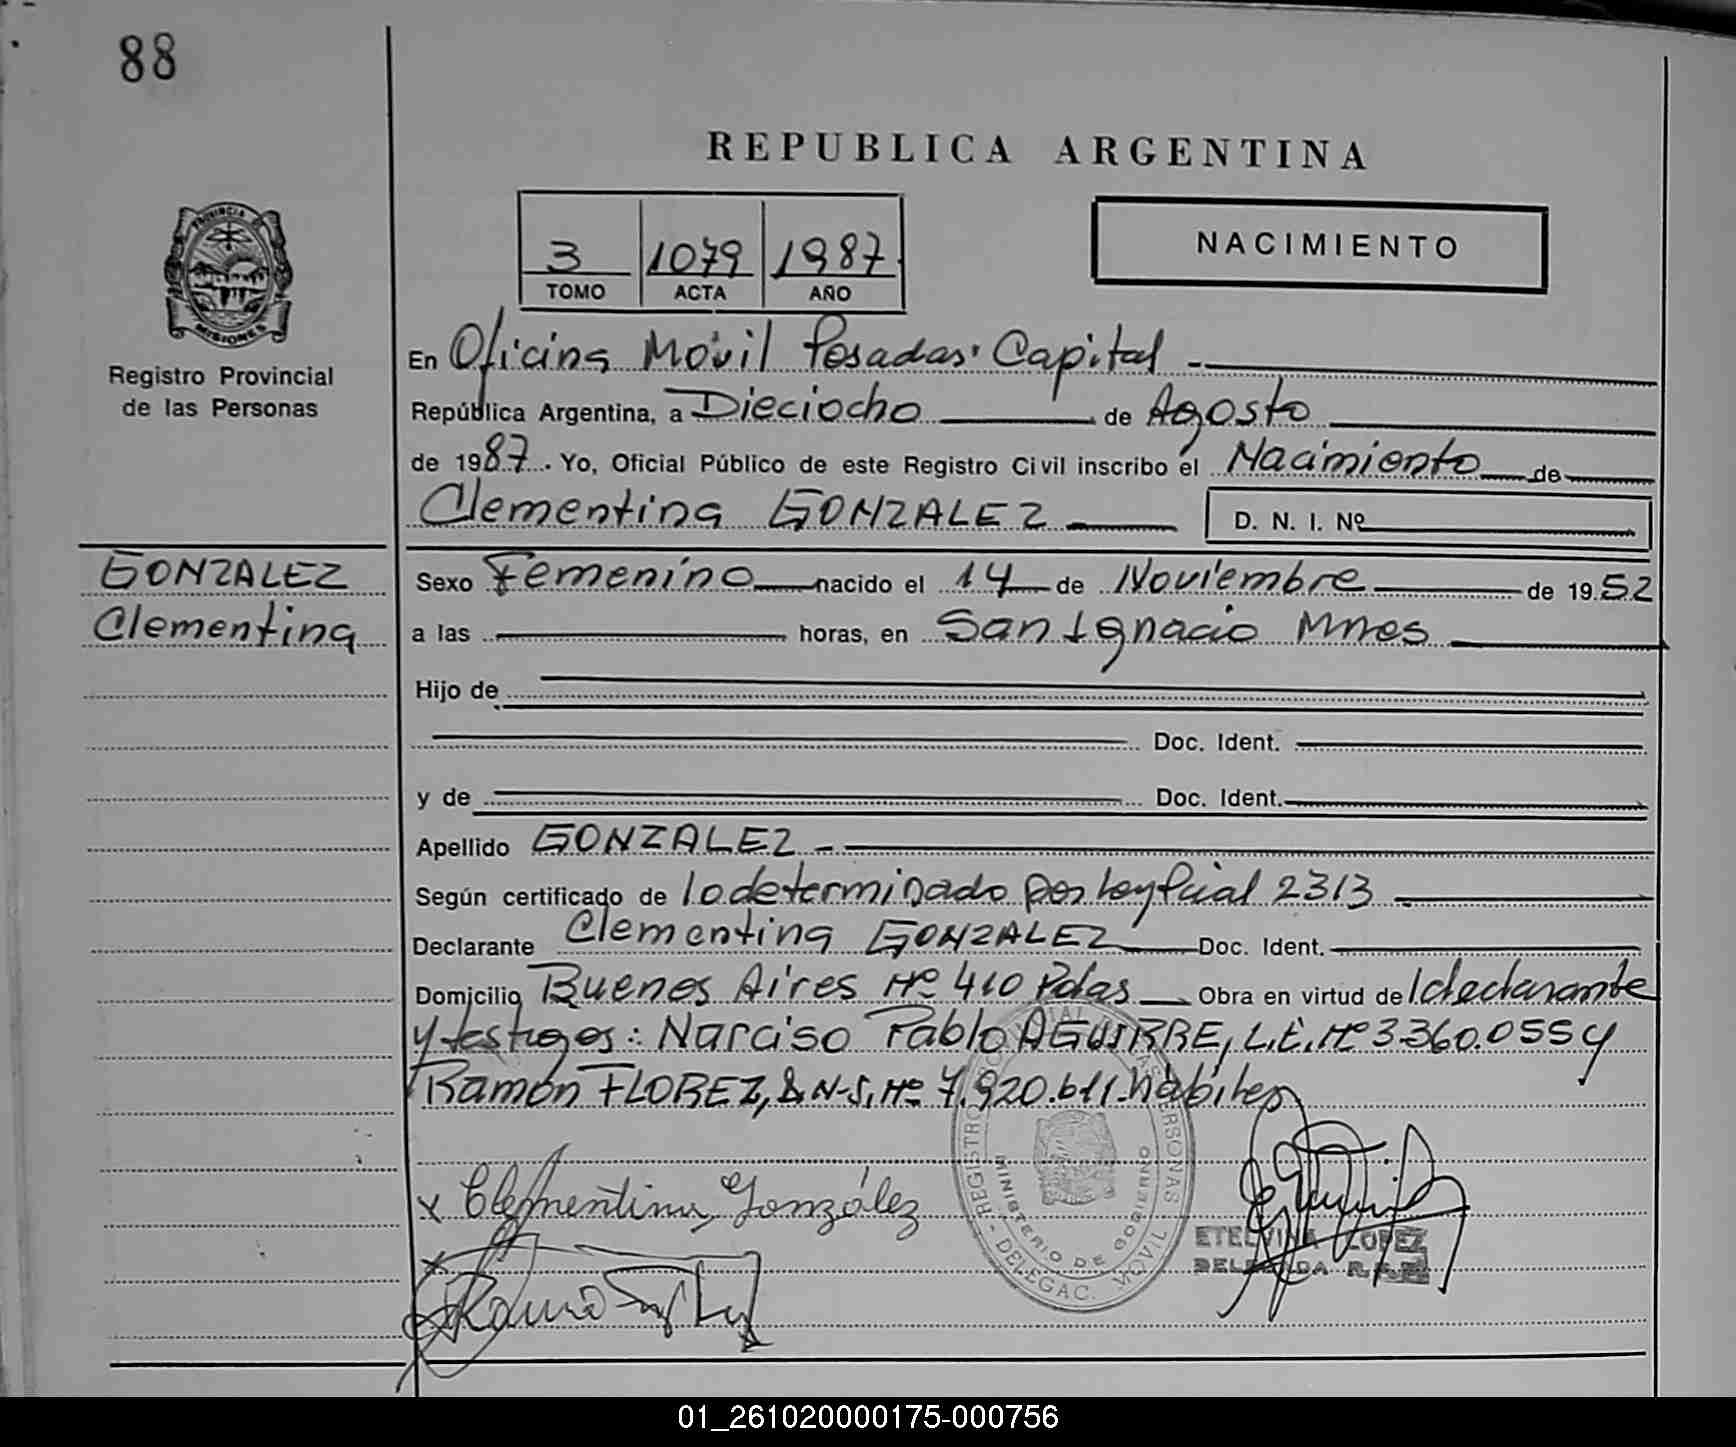 88
REPUBLICA ARGENTINA
PROVINCIA
MISIONES
Registro Provincial
de las Personas
3 1079 1987
TOMO ACTA AÑO
NACIMIENTO
En Oficina Móvil Posadas Capital
República Argentina, a Dieciocho de Agosto
de 1987. Yo, Oficial Público de este Registro Civil inscribo el Nacimiento de
Clementina GONZALEZ D. N. I. Nº
GONZALEZ
Clementina
Sexo Femenino nacido el 14 de Noviembre de 1952
a las horas, en San Ignacio Mnes
Hijo de
Doc. Ident.
y de Doc. Ident.
Apellido GONZALEZ
Según certificado de lo determinado por Ley Pcial 2313
Declarante Clementina GONZALEZ Doc. Ident.
Domicilio Buenos Aires Nº 410 Pdas Obra en virtud de l declarante
y testigos: Narciso Pablo AGUIRRE, L.E. Nº 3.360.055 y
Ramón FLOREZ, D.N.I. Nº 7.920.611 hábiles
x Clementina González
x
REGISTRO PERSONAS
MINISTERIO DE GOBIERNO
DELEGAC. MOVIL
ETELVINA LOPEZ
DELEGADA R.P.P.
01_261020000175-000756